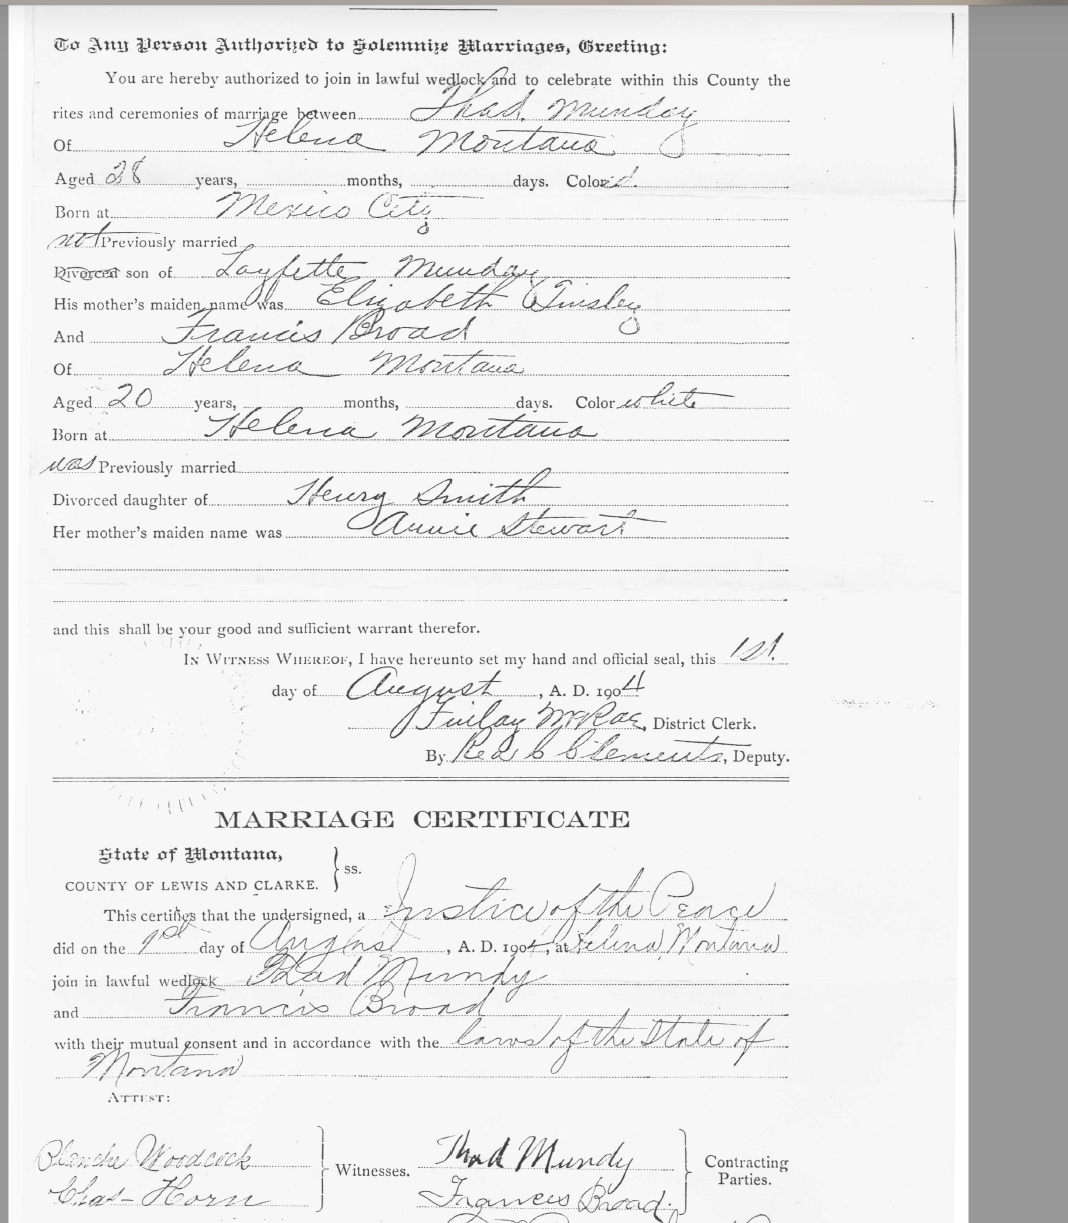 To Any Person Authorized to Solemnize Marriages, Greeting:
You are hereby authorized to join in lawful wedlock and to celebrate within this County the
rites and ceremonies of marriage between Thad. Munday
Of Helena Montana
Aged 28 years, months, days. Color d.
Born at Mexico City
not Previously married
Divorced son of Layfette Munday
His mother's maiden name was Elizabeth Tinsley
And Francis Broad
Of Helena Montana
Aged 20 years, months, days. Color white
Born at Helena Montana
was Previously married
Divorced daughter of Henry Smith
Her mother's maiden name was Annie Stewart
and this shall be your good and sufficient warrant therefor.
IN WITNESS WHEREOF, I have hereunto set my hand and official seal, this 1st.
day of August, A. D. 1904
Finlay McRae, District Clerk.
By C Clements, Deputy.
MARRIAGE CERTIFICATE
State of Montana,
COUNTY OF LEWIS AND CLARKE. } ss.
This certifies that the undersigned, a Justice of the Peace
did on the 1st day of August, A. D. 1904, at Helena Montana
join in lawful wedlock Thad Mundy
and Francis Broad
with their mutual consent and in accordance with the laws of the State of
Montana
ATTEST:
Blanche Woodcock
Chas- Horn
Witnesses.
Thad Mundy
Francis Broad.
Contracting
Parties.